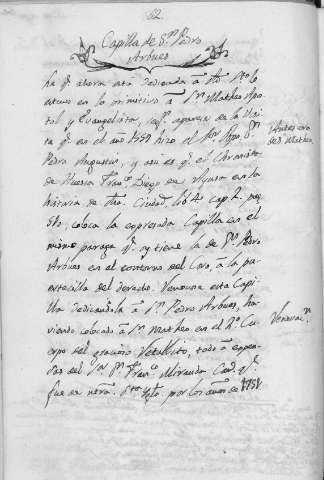 82
Capilla de Sn. Pedro
Arbues
ha qe. ahora está dedicada á dho Sto. lo
estuvo en lo primitivo á Sn. Matheo Apo-
tol y Evangelista, segn. aparece de la Visi-
ta qe. en el año 1559 hizo el
Pedro Augustin, y assi es qe. el Chronista
de Huesca Franco. Diego de Aynsa en la
historia de dha. Ciudad, lib. 4 cap. 2 pag.
510, coloca la expresada Capilla en el
mismo parage qe. oy tiene la de Sn. Pedro
Arbues en el contorno del Coro, á la pa-
rte
del derecho. Renovose esta Capi-
lla dedicandola á Sn. Pedro Arbues, ha-
viendo colocado á Sn. Matheo en el 2o. Cu-
erpo del mismo Retablito, todo á expen-
sas del Sor. Dn. Franco. Miranda Cano. qe.
fue de ntra. Sta. Igla. por los años de 1751
Antes era
de S. Matheo
Renovacn.